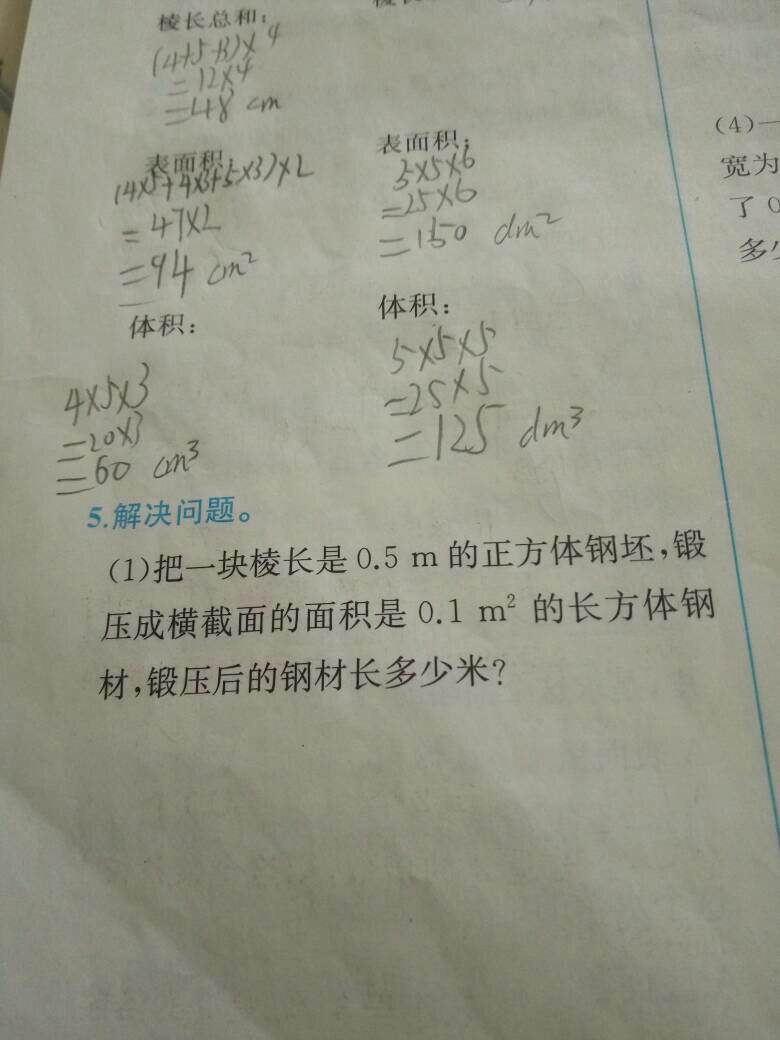 棱长总和:
(4+5+3)×4
=12×4
=48 cm
表面积:
(4×5+4×3+5×3)×2
=47×2
=94 cm²
体积:
4×5×3
=20×3
=60 cm³
表面积:
5×5×6
=25×6
=150 dm²
体积:
5×5×5
=25×5
=125 dm³
5.解决问题。
(1)把一块棱长是0.5 m的正方体钢坯,锻
压成横截面的面积是0.1 m²的长方体钢
材,锻压后的钢材长多少米?
(4)一
宽为
了0
多少